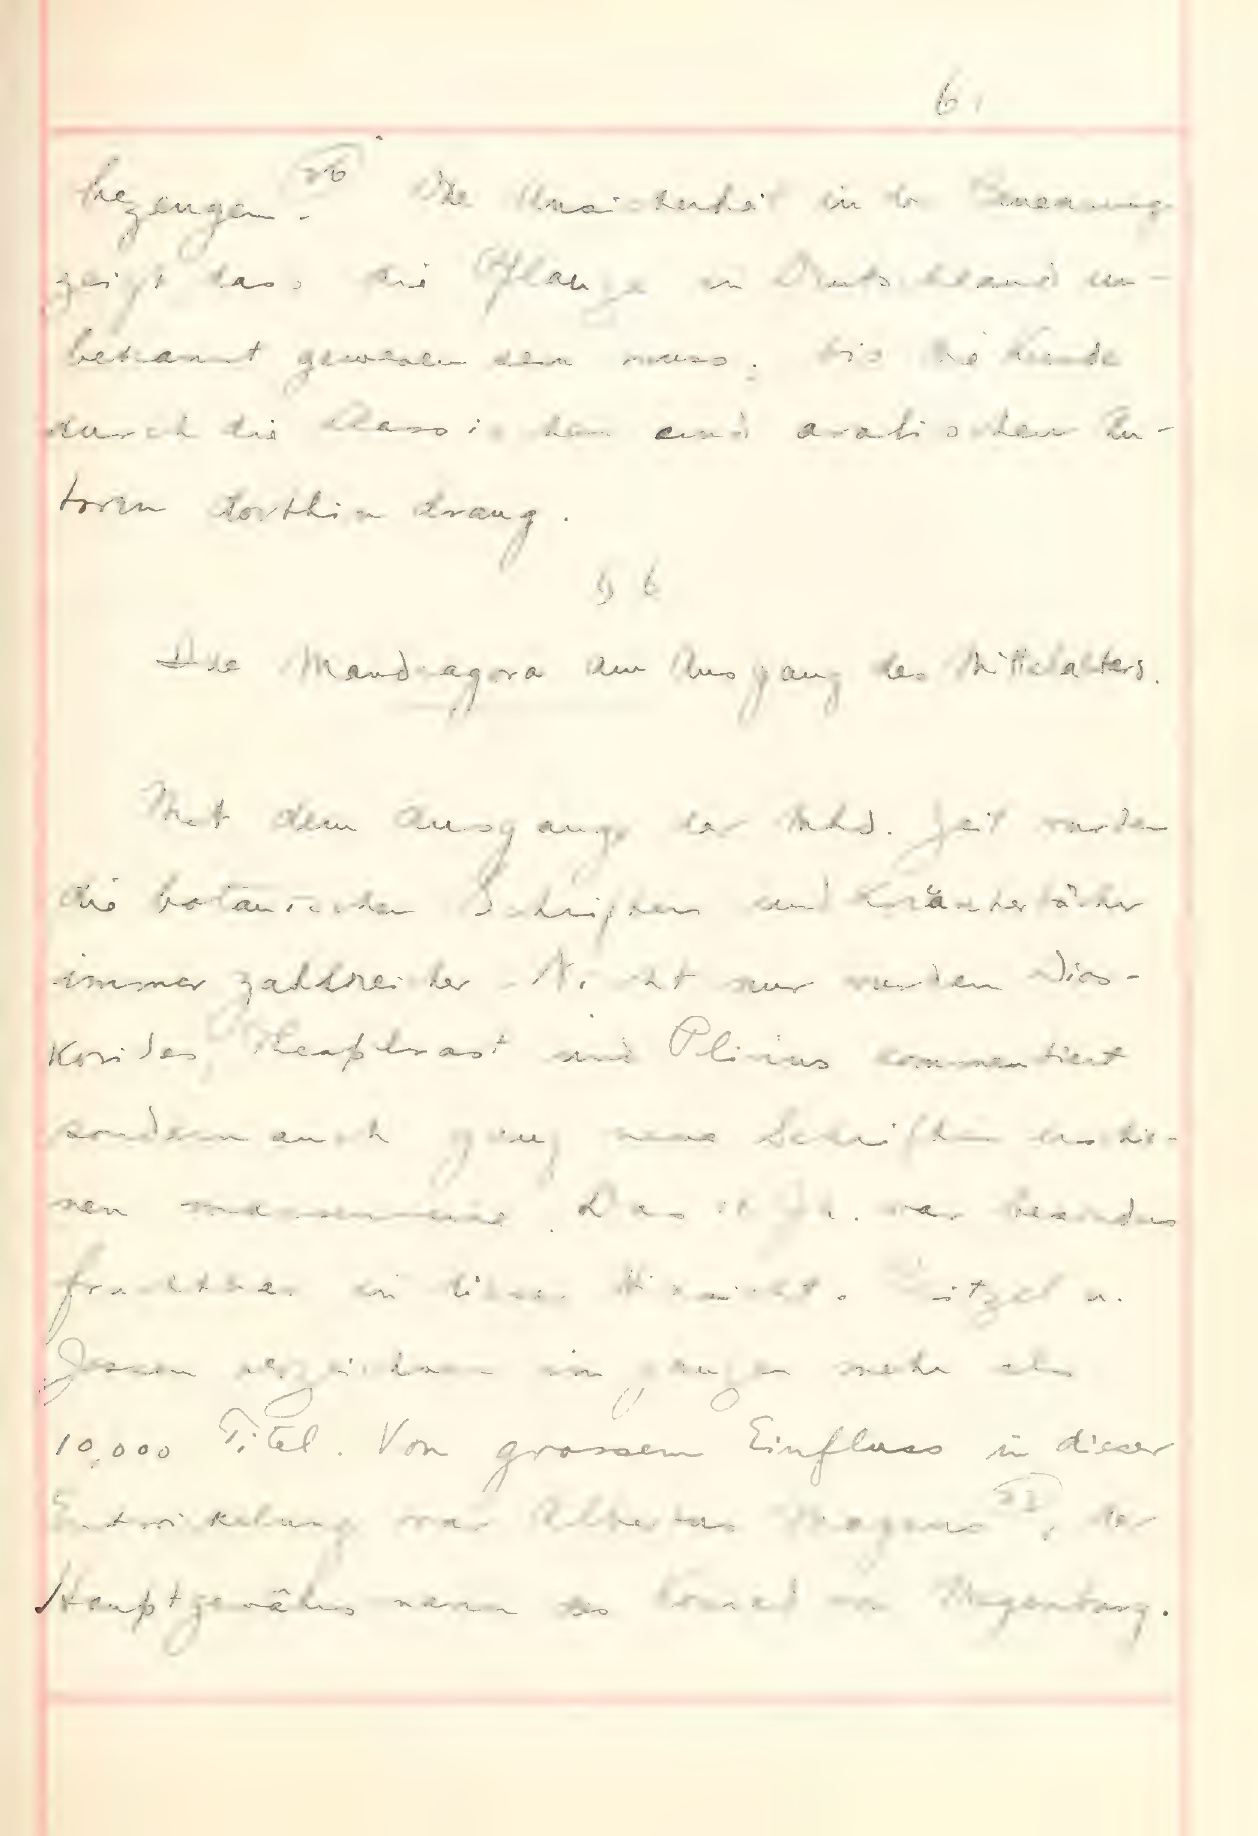 61
bezeugen. 26 Die Unsicherheit in der Benennung
zeigt dass die Pflanze in Deutschland un-
bekannt gewesen sein muss, bis die Kunde
durch die klassischen und arabischen Au-
toren dorthin drang.
§ 6
Die Mandragora am Ausgang des Mittelalters.
Mit dem Ausgange der Mhd. Zeit wurden
die botanischen Schriften und Kräuterbücher
immer zahlreicher. Nicht nur wurden Dios-
korides, Theophrast und Plinius commentiert
sondern auch ganz neue Schriften erschie-
nen massenweise. Das Jh. war besonders
fruchtbar in dieser Hinsicht. Pritzel u.
Jessen verzeichnen im ganzen mehr als
10,000 Titel. Von grossem Einfluss in dieser
Entwickelung war Albertus Magnus 27, der
Hauptgewährsmann des Konrad von Megenberg.